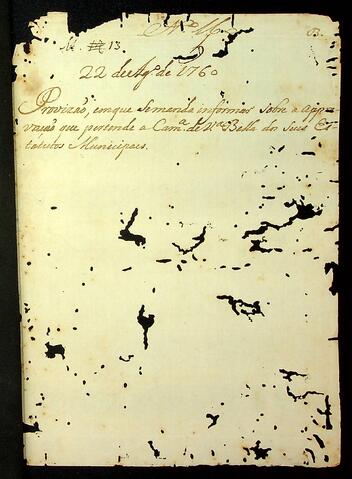 N.º 16
63.
N. 13.
22 de Ag.º de 1760
Provizão, em que se manda informar sobre a appro-
vação que pertende a Cam.ª de V.ª Bella dos seus Es-
tatutos Municipaes.